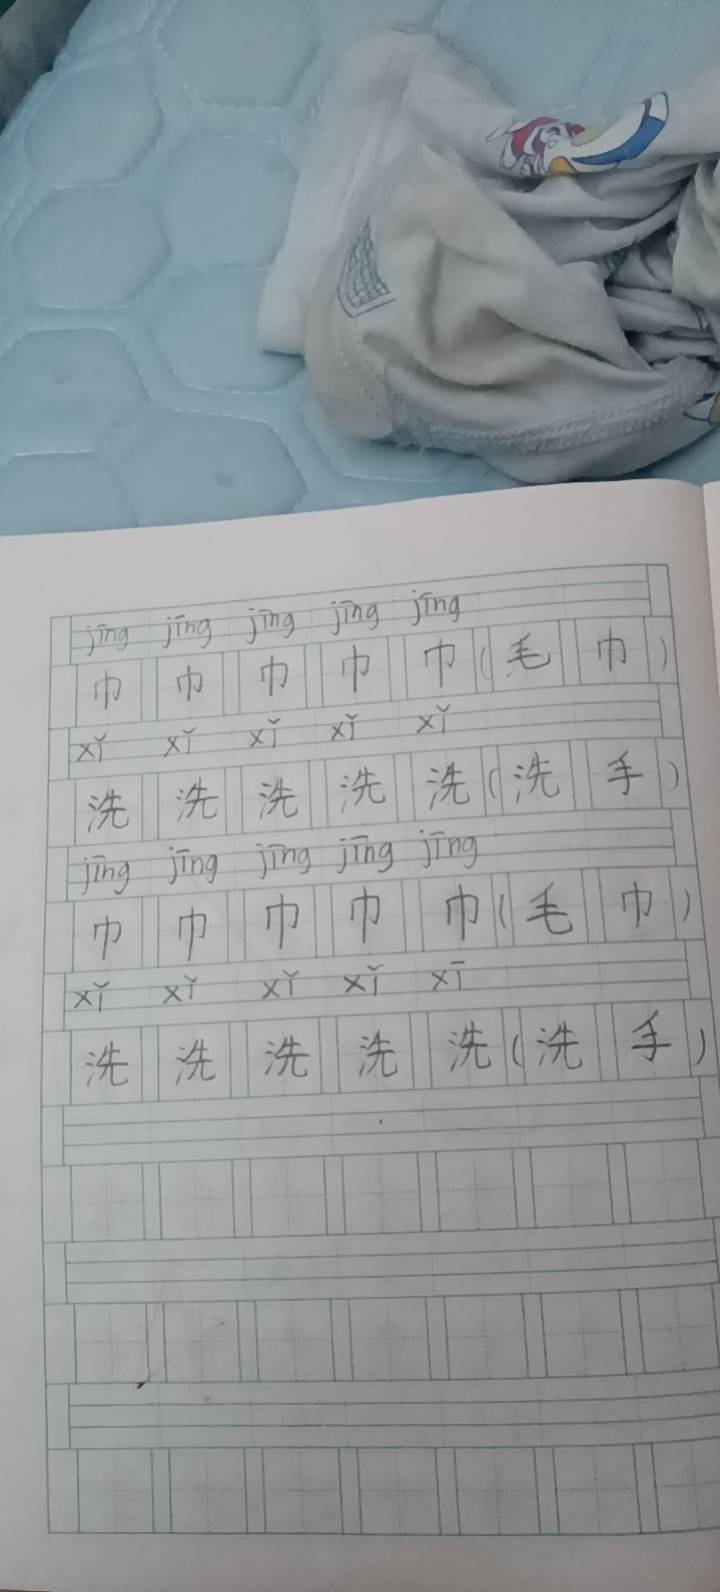 jīng jīng jīng jīng jīng
巾 巾 巾 巾 巾 ( 毛 巾 )
xǐ xǐ xǐ xǐ xǐ
洗 洗 洗 洗 洗 ( 洗 手 )
jīng jīng jīng jīng jīng
巾 巾 巾 巾 巾 ( 毛 巾 )
xǐ xǐ xǐ xǐ xī
洗 洗 洗 洗 洗 ( 洗 手 )